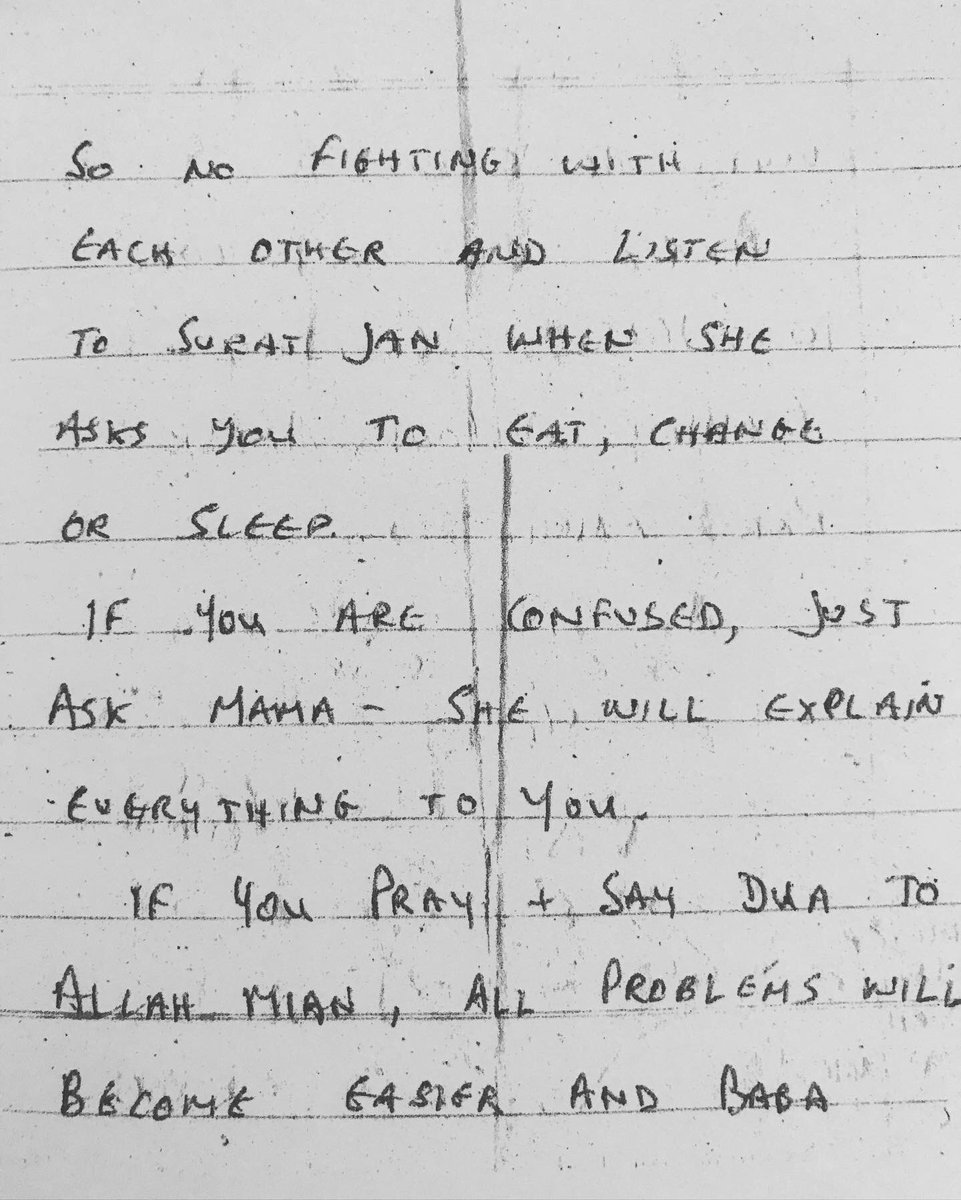 So NO FIGHTING WITH
EACH OTHER AND LISTEN
TO SURATI JAN WHEN SHE
ASKS YOU TO EAT, CHANGE
OR SLEEP.
IF YOU ARE CONFUSED, JUST
ASK MAMA - SHE WILL EXPLAIN
EVERYTHING TO YOU.
IF YOU PRAY + SAY DUA TO
ALLAH MIAN, ALL PROBLEMS WILL
BECOME EASIER AND BABA